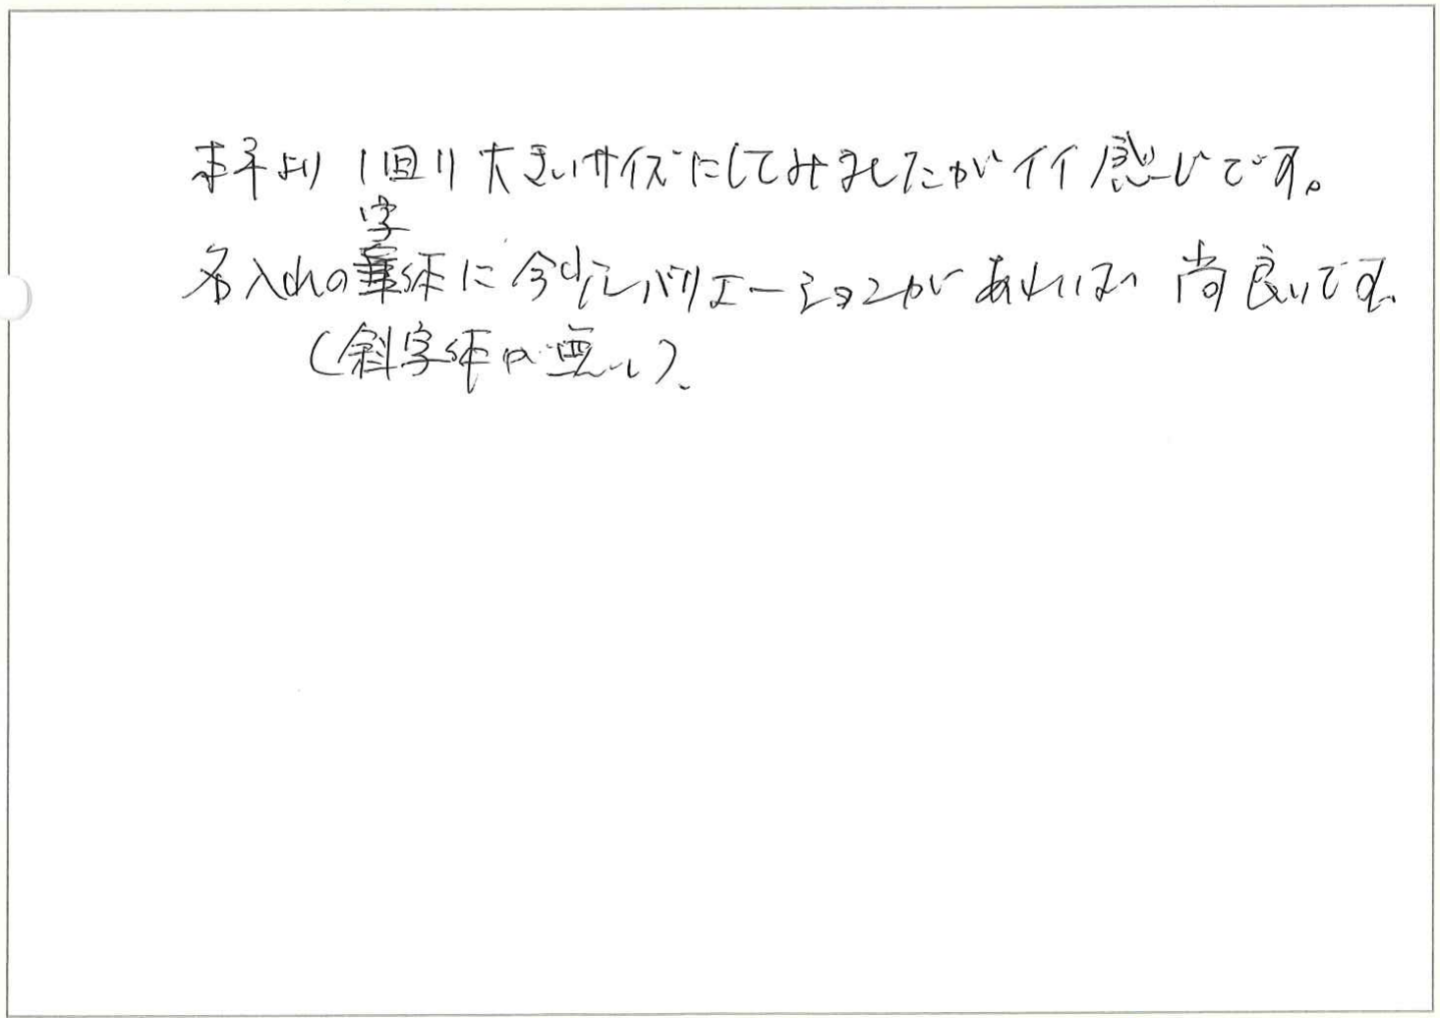 本年より1回り大きいサイズにしてみましたがイイ感じです。
名入れの字体に今少しバリエーションがあれば尚良いです。
(斜字体が無い)、